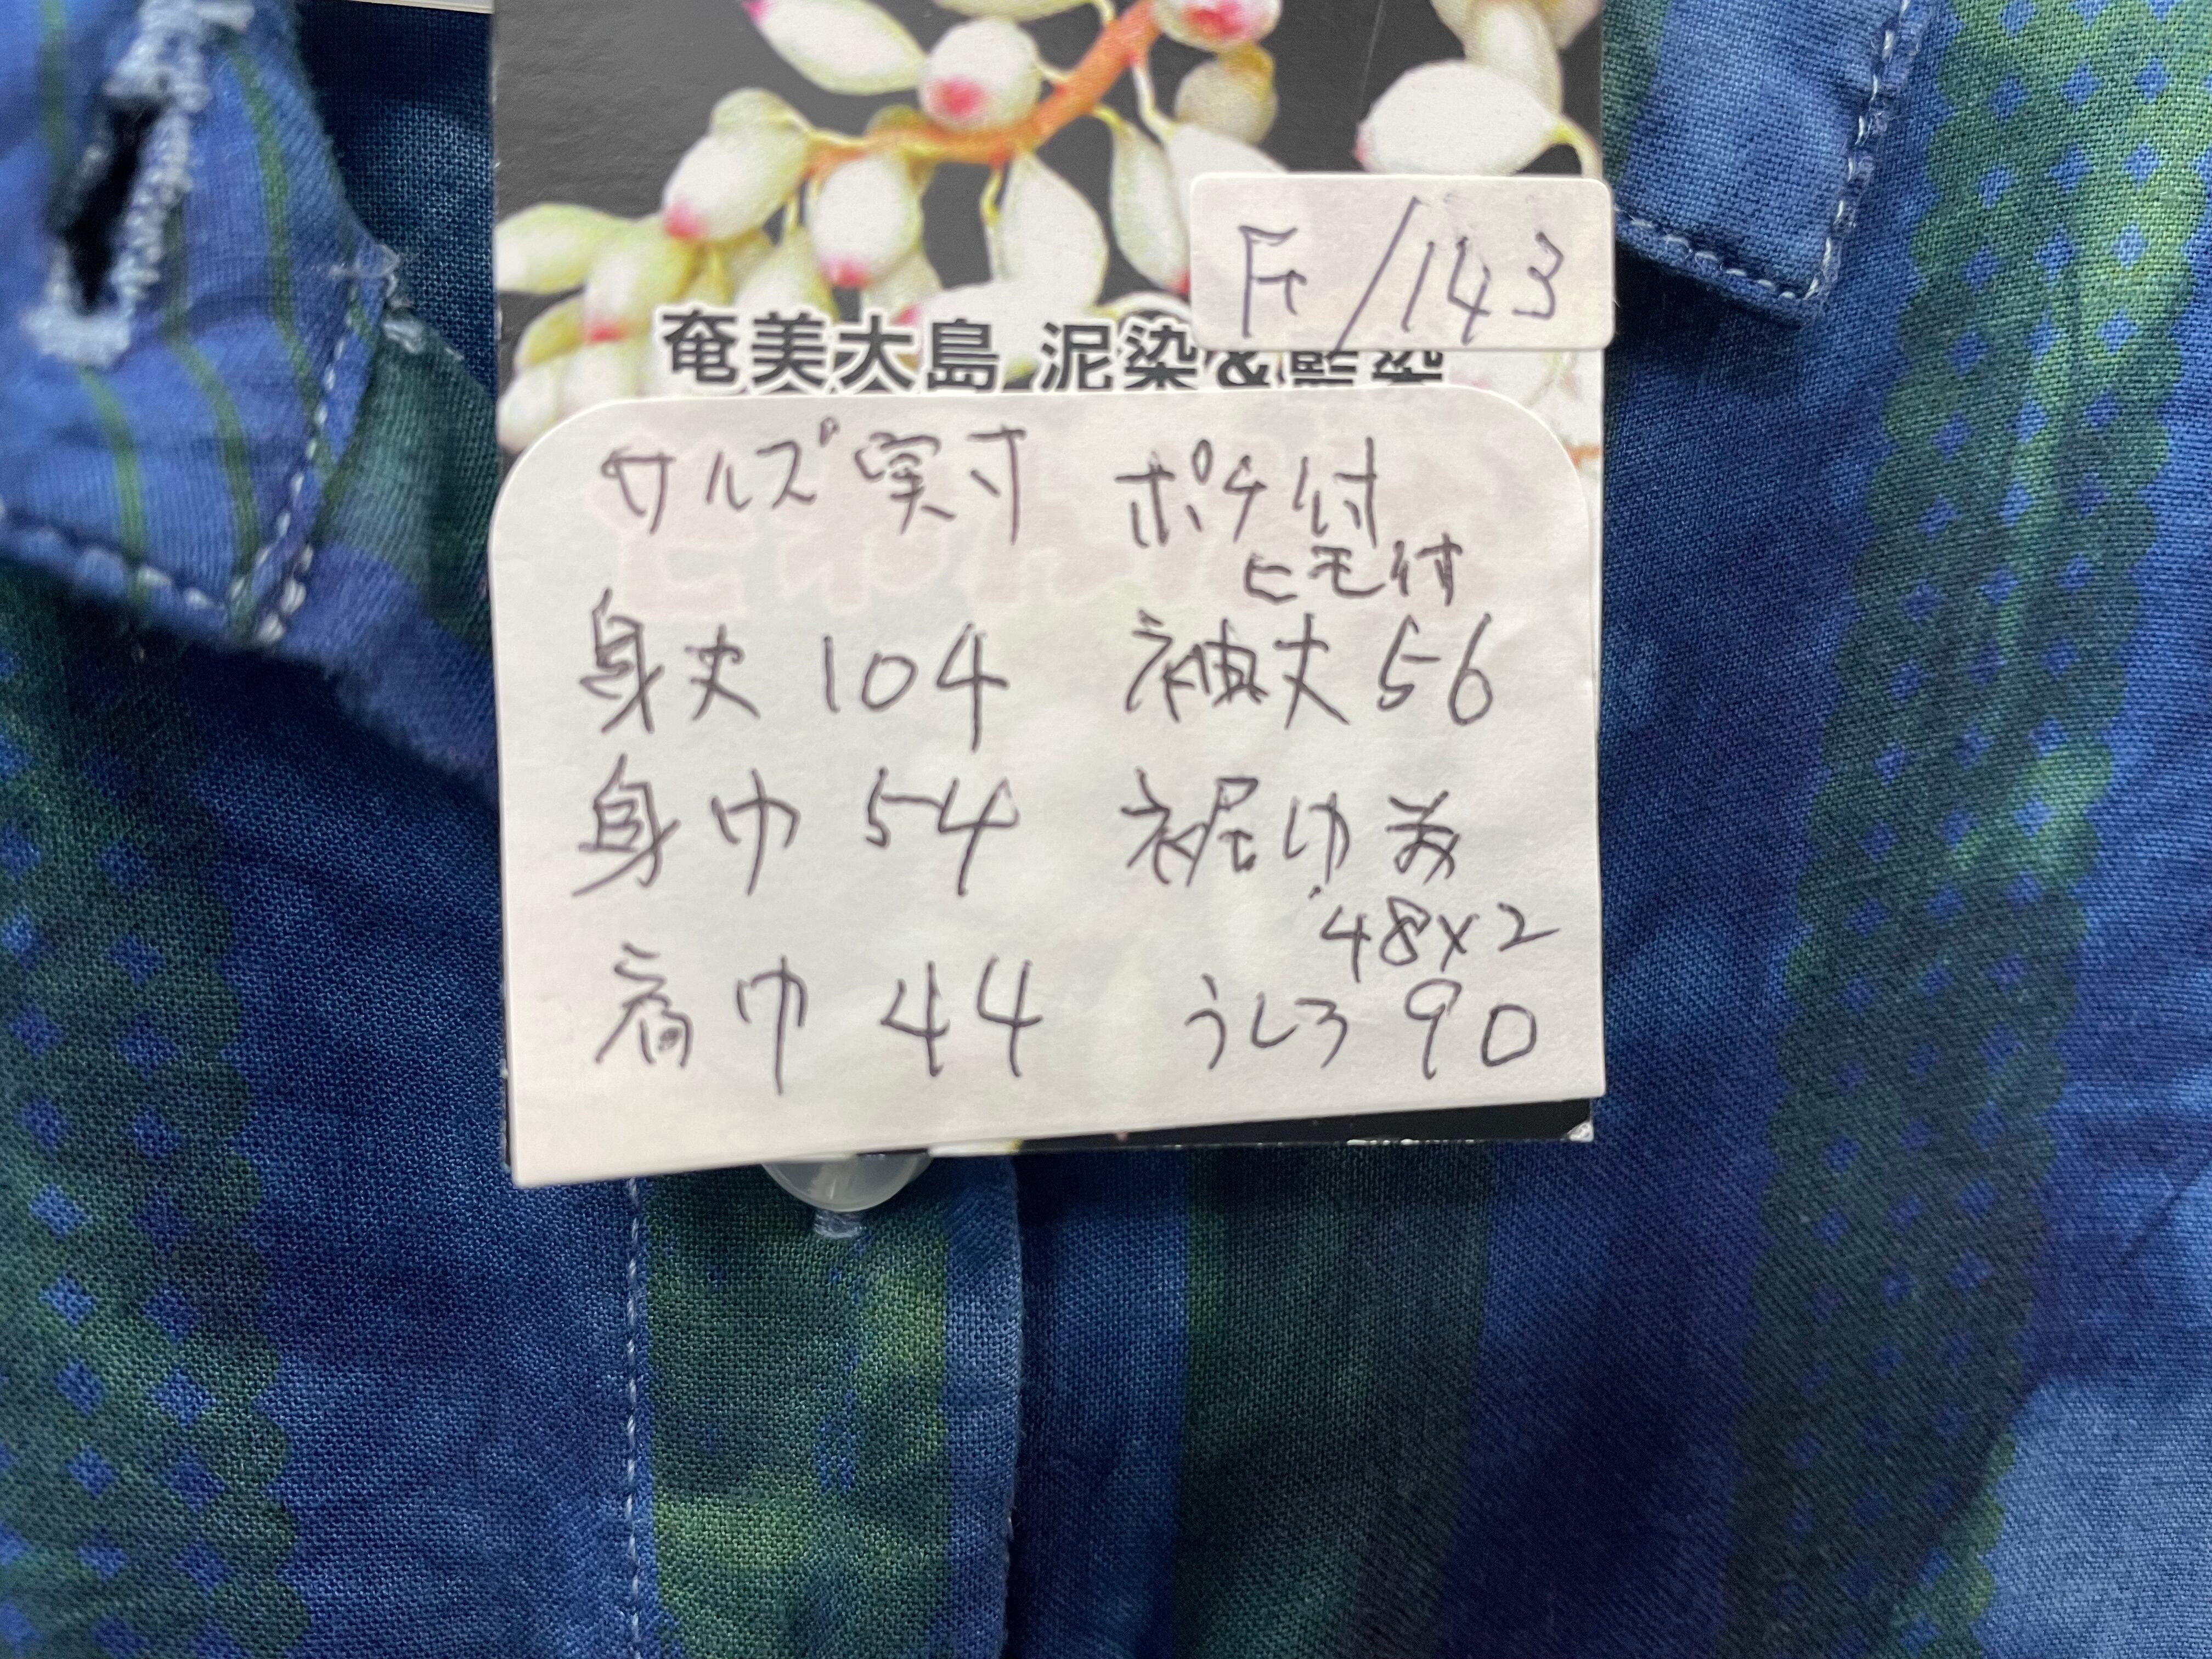 F/143
奄美大島 泥染&藍染
サイズ実寸 ポケ付
ヒモ付
身丈 104 袖丈 56
身巾 54 裾巾 前
48×2
肩巾 44 うしろ 90